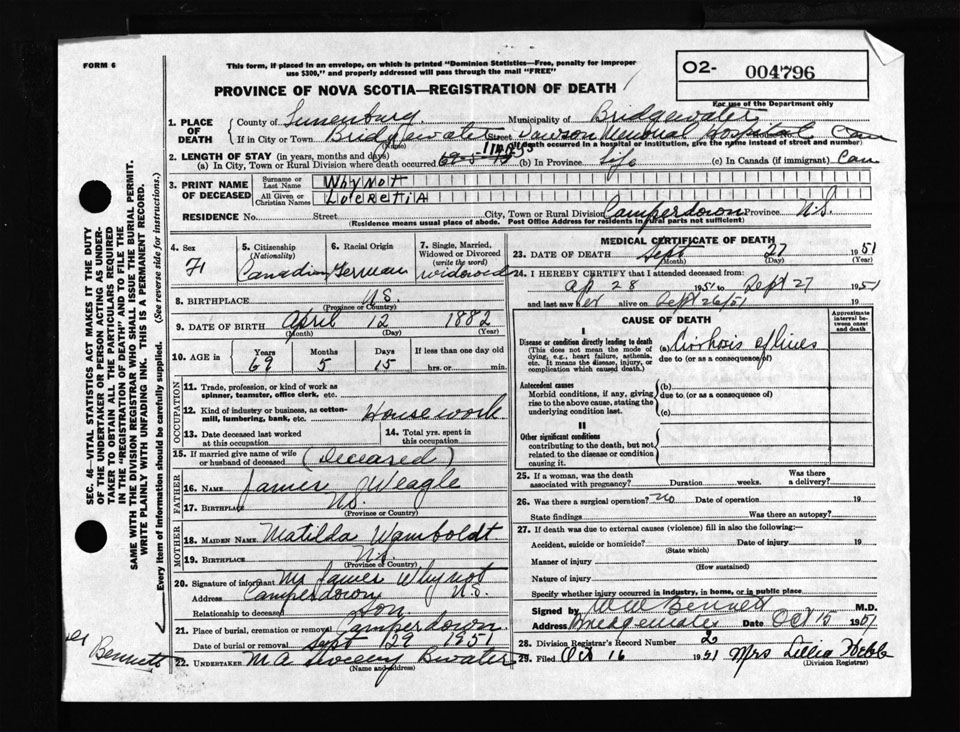 FORM 6
This form, if placed in an envelope, on which is printed "Dominion Statistics—Free, penalty for improper
use $300," and properly addressed will pass through the mail "FREE"
PROVINCE OF NOVA SCOTIA—REGISTRATION OF DEATH
O2- 004796
For use of the Department only
1. PLACE OF DEATH County of Lunenburg Municipality of Bridgewater
If in City or Town Bridgewater Street Dawson Memorial Hospital
(Name) (If death occurred in a hospital or institution, give the name instead of street and number)
2. LENGTH OF STAY (in years, months and days)
(a) In City, Town or Rural Division where death occurred 69-5-15 (b) In Province Life (c) In Canada (if immigrant) Can
3. PRINT NAME OF DECEASED
Surname or Last Name Whynott
All Given or Christian Names Lucretia
RESIDENCE No. Street City, Town or Rural Division Camperdown Province N.S.
(Residence means usual place of abode. Post Office Address for residents in rural parts not sufficient)
4. Sex F
5. Citizenship (Nationality) Canadian
6. Racial Origin German
7. Single, Married, Widowed or Divorced (write the word) widowed
8. BIRTHPLACE N.S.
(Province or Country)
9. DATE OF BIRTH April 12 1882
(Month) (Day) (Year)
10. AGE in Years Months Days If less than one day old
69 5 15 hrs. or min.
OCCUPATION
11. Trade, profession, or kind of work as
spinner, teamster, office clerk, etc.
12. Kind of industry or business, as cotton-
mill, lumbering, bank, etc. Housework
13. Date deceased last worked
at this occupation
14. Total yrs. spent in
this occupation
15. If married give name of wife
or husband of deceased (Deceased)
FATHER
16. NAME James Weagle
17. BIRTHPLACE N.S.
(Province or Country)
MOTHER
18. MAIDEN NAME Matilda Wamboldt
19. BIRTHPLACE N.S.
(Province or Country)
20. Signature of informant Mr James Whynot
Address Camperdown N.S.
Relationship to deceased Son
21. Place of burial, cremation or removal Camperdown
Date of burial or removal Sept 29 1951
22. UNDERTAKER M A Bwater
(Name and address)
MEDICAL CERTIFICATE OF DEATH
23. DATE OF DEATH Sept 27 1951
(Month) (Day) (Year)
24. I HEREBY CERTIFY that I attended deceased from
Ap 28 1951 to Sept 27 1951
and last saw her alive on Sept 26/51 19
CAUSE OF DEATH
Approximate interval between onset and death
I
Disease or condition directly leading to death
(This does not mean the mode of
dying, e.g., heart failure, asthenia,
etc. It means the disease, injury, or
complication which caused death.)
(a) Cirrhosis of liver
due to (or as a consequence of)
Antecedent causes
Morbid conditions, if any, giving
rise to the above cause, stating the
underlying condition last.
(b)
due to (or as a consequence of)
(c)
II
Other significant conditions
contributing to the death, but not
related to the disease or condition
causing it.
25. If a woman, was the death
associated with pregnancy? Duration weeks. Was there
a delivery?
26. Was there a surgical operation? no Date of operation 19
State findings Was there an autopsy?
27. If death was due to external causes (violence) fill in also the following:—
Accident, suicide or homicide? Date of injury 19
(State which)
Manner of injury
(How sustained)
Nature of injury
Specify whether injury occurred in industry, in home, or in public place
Signed by Bennett M.D.
Address Bridgewater Date Oct 15 1951
28. Division Registrar's Record Number 2
29. Filed Oct 16 1951 Mrs Lillia Webb
(Division Registrar)
SEC. 46—VITAL STATISTICS ACT MAKES IT THE DUTY
OF THE UNDERTAKER OR PERSON ACTING AS UNDER-
TAKER TO OBTAIN ALL THE PARTICULARS REQUIRED
IN THE "REGISTRATION OF DEATH" AND TO FILE THE
SAME WITH THE DIVISION REGISTRAR WHO SHALL ISSUE THE BURIAL PERMIT.
WRITE PLAINLY WITH UNFADING INK. THIS IS A PERMANENT RECORD.
Every item of Information should be carefully supplied. (See reverse side for instructions.)
Bennett